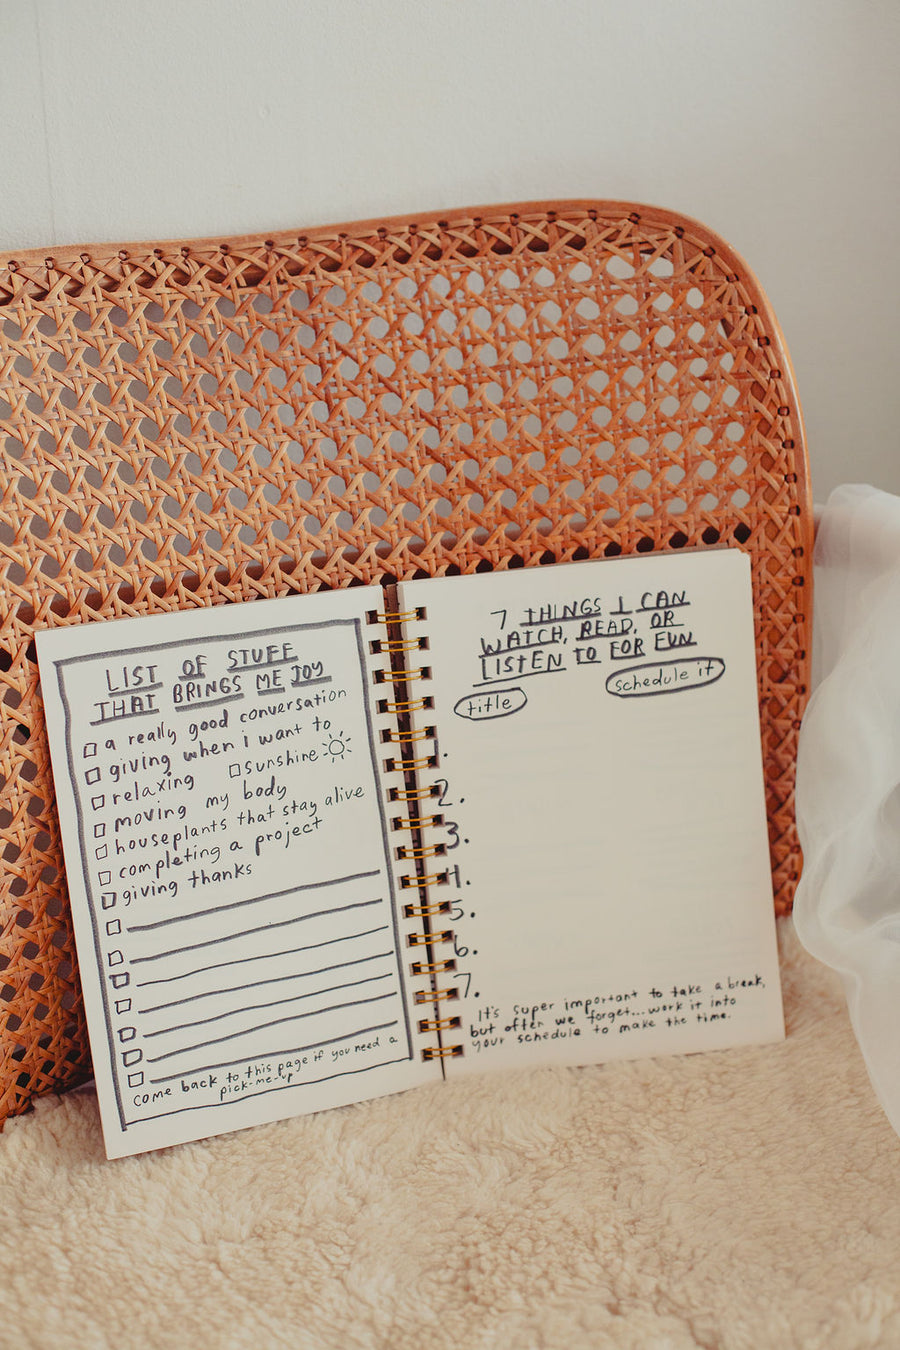 LIST OF STUFF
THAT BRINGS ME JOY
a really good conversation
giving when i want to
relaxing sunshine
moving my body
houseplants that stay alive
completing a project
giving thanks
come back to this page if you need a
pick-me-up
7 THINGS I CAN
WATCH, READ, OR
LISTEN TO FOR FUN
title schedule it
1.
2.
3.
4.
5.
6.
7.
It's super important to take a break,
but often we forget... work it into
your schedule to make the time.